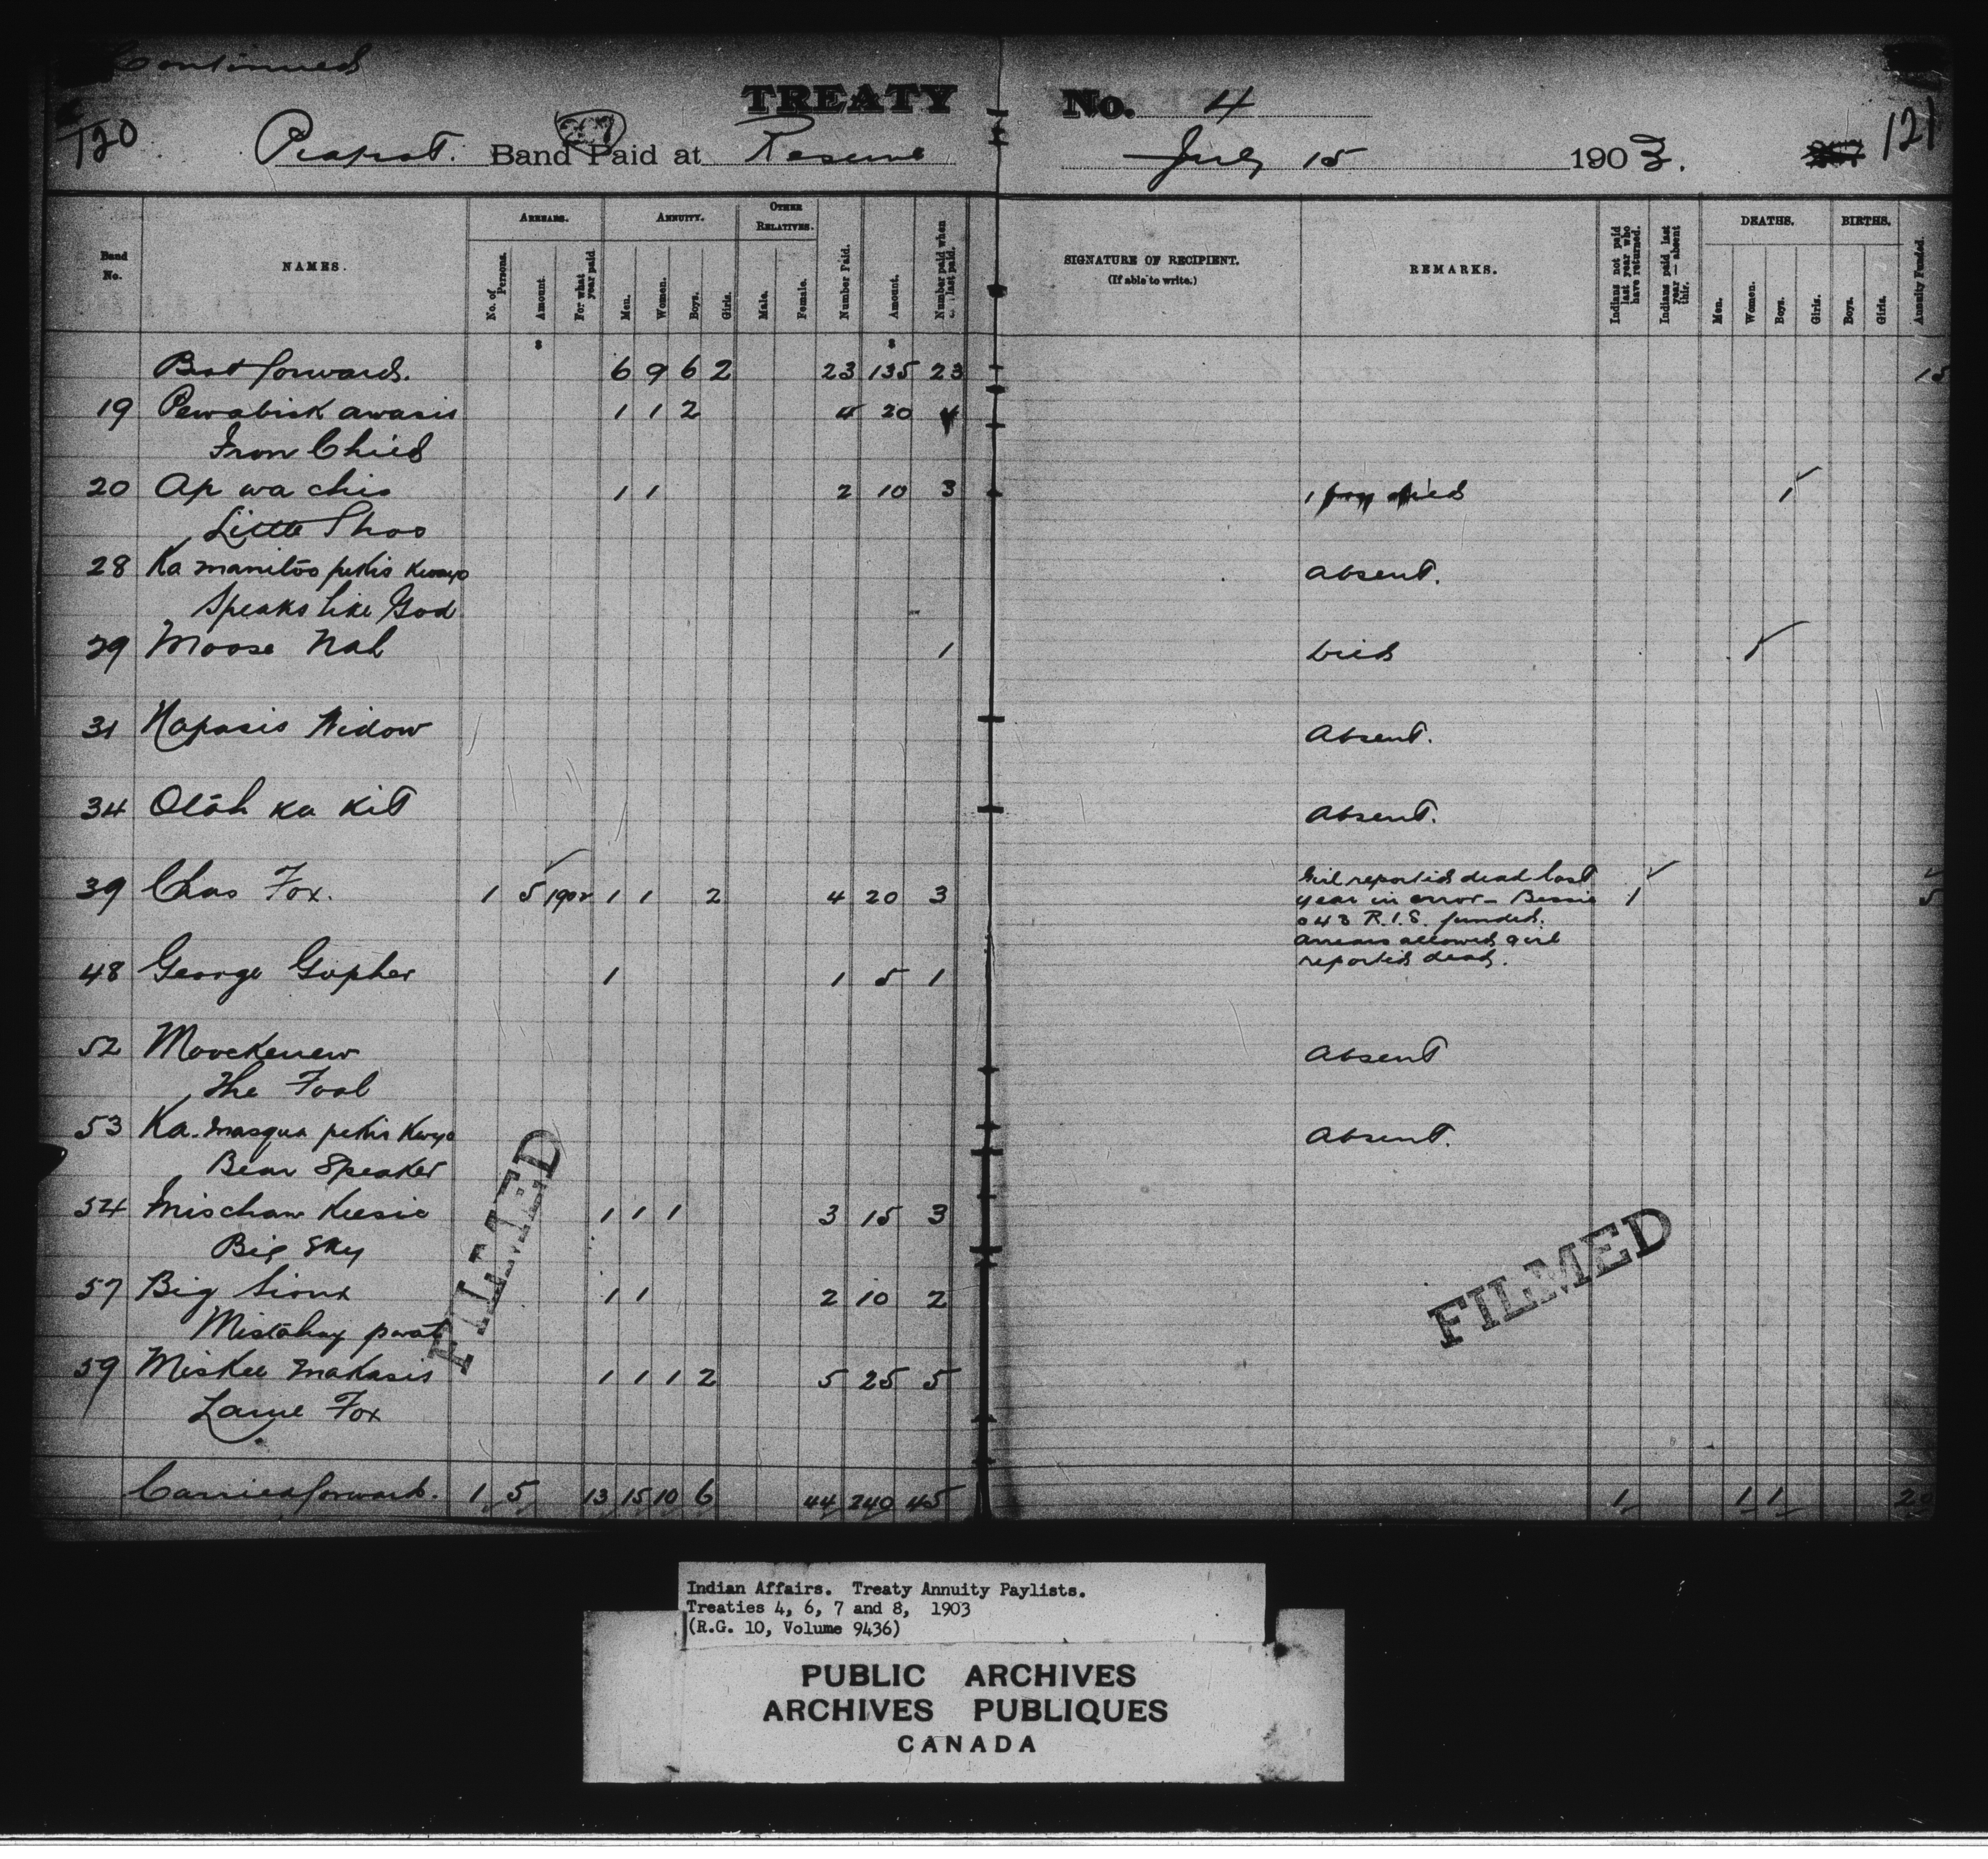 Continued
TREATY No. 4
120 Peapot. Band Paid at Reserve July 15 1903. 121
Band No. NAMES. ARREARS. ANNUITY. OTHER RELATIVES. Number Paid. Amount. Number paid when last paid. SIGNATURE OF RECIPIENT. (If able to write.) REMARKS. Indians not paid last year who have returned. Indians paid last year — absent this. DEATHS. BIRTHS. Annuity Funded.
No. of Persons. Amount. For what year paid Men. Women. Boys. Girls. Male. Female. Men. Women. Boys. Girls. Boys. Girls.
$ $
Brot forward. 6 9 6 2 23 135 23 15
19 Pewabisk awasis 1 1 2 4 20 4
Iron Child
20 Ap wa chis 1 1 2 10 3 1 boy died 1
Little Shoo
28 Ka manitoo petis Absent.
Speaks like God
29 Moose Nah 1 Died 1
31 Napasis Widow Absent.
34 Otah ka kit Absent.
39 Chas Fox. 1 5 1902 1 1 2 4 20 3 Girl reported dead last 1 5
year in error - Bessie
043 R.I.S. funded.
Arrears allowed girl
reported dead.
48 George Gopher 1 1 5 1
52 Moockenew Absent
The Foal
53 Ka. masqua petis Absent.
Bear Speaker
54 Mischaw Keesic 1 1 1 3 15 3
Big Sky
57 Big Sioux 1 1 2 10 2
Mistahay pwat
59 Miskee makasis 1 1 1 2 5 25 5
Lame Fox
Carried forward. 1 5 13 15 10 6 44 240 45 1 1 1 20
FILMED
FILMED
Indian Affairs. Treaty Annuity Paylists.
Treaties 4, 6, 7 and 8, 1903
(R.G. 10, Volume 9436)
PUBLIC ARCHIVES
ARCHIVES PUBLIQUES
CANADA